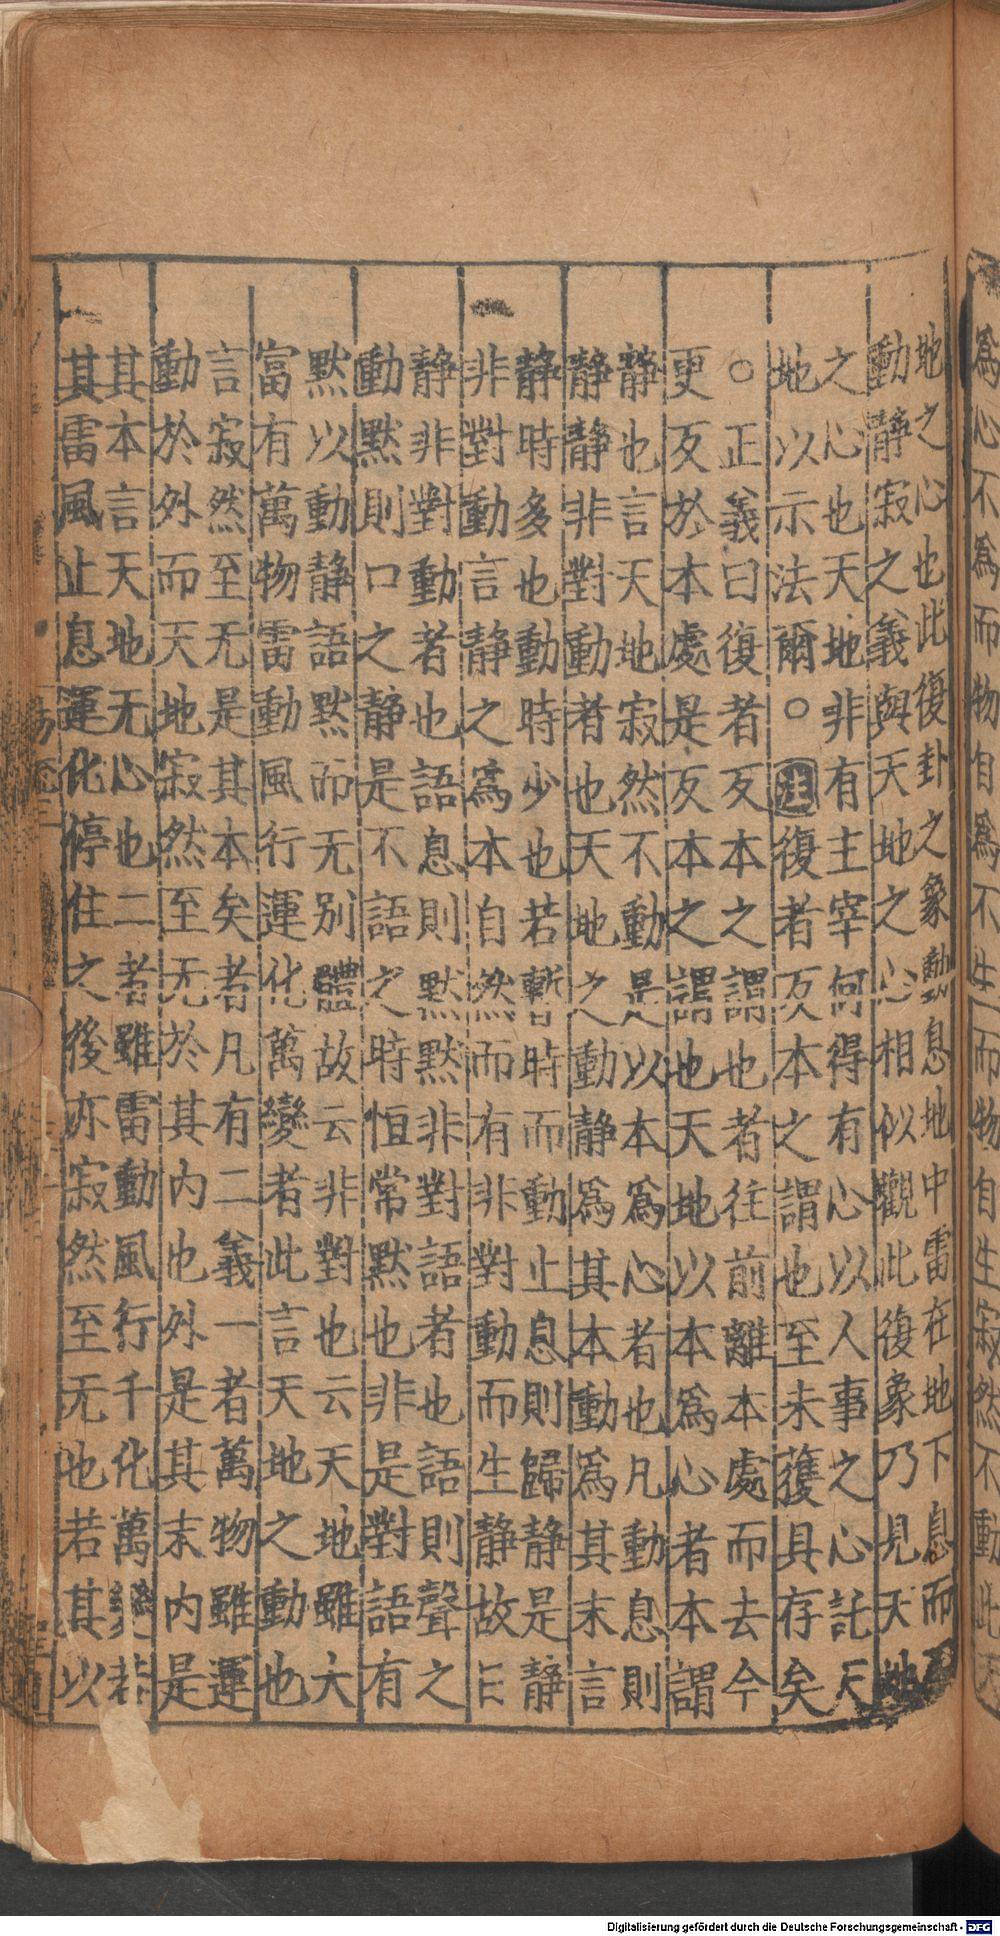 為心不為而物自為不生而物自生寂然不動此天
地之心也此復卦之象動息地中雷在地下息而
動静寂之義與天地之心相似觀此復象乃見天地
之心也天地非有主宰何得有心以人事之心託天
地以示法爾○注復者反本之謂也至未獲具存矣
○正義曰復者反本之謂也者往前離本處而去今
更反於本處是反本之謂也天地以本爲心者本謂
静也言天地寂然不動是以本爲心者也凡動息則
静静非對動者也天地之動静爲其本動爲其末言
静時多也動時少也若暫時而動止息則歸静是静
非對動言静之爲本自然而有非對動而生静故曰
静非對動者也語息則默默非對語者也語則聲之
動默則口之静是不語之時恒常默也非是對語有
默以動静語默而无别體故云非對也云天地雖大
富有萬物雷動風行運化萬變者此言天地之動也
言寂然至无是其本矣者凡有二義一者萬物雖運
動於外而天地寂然至无於其内也外是其末内是
其本言天地无心也二者雖雷動風行千化萬變若
其雷風止息運化停住之後亦寂然至无也若其以
Digitalisierung gefördert durch die Deutsche Forschungsgemeinschaft - DFG